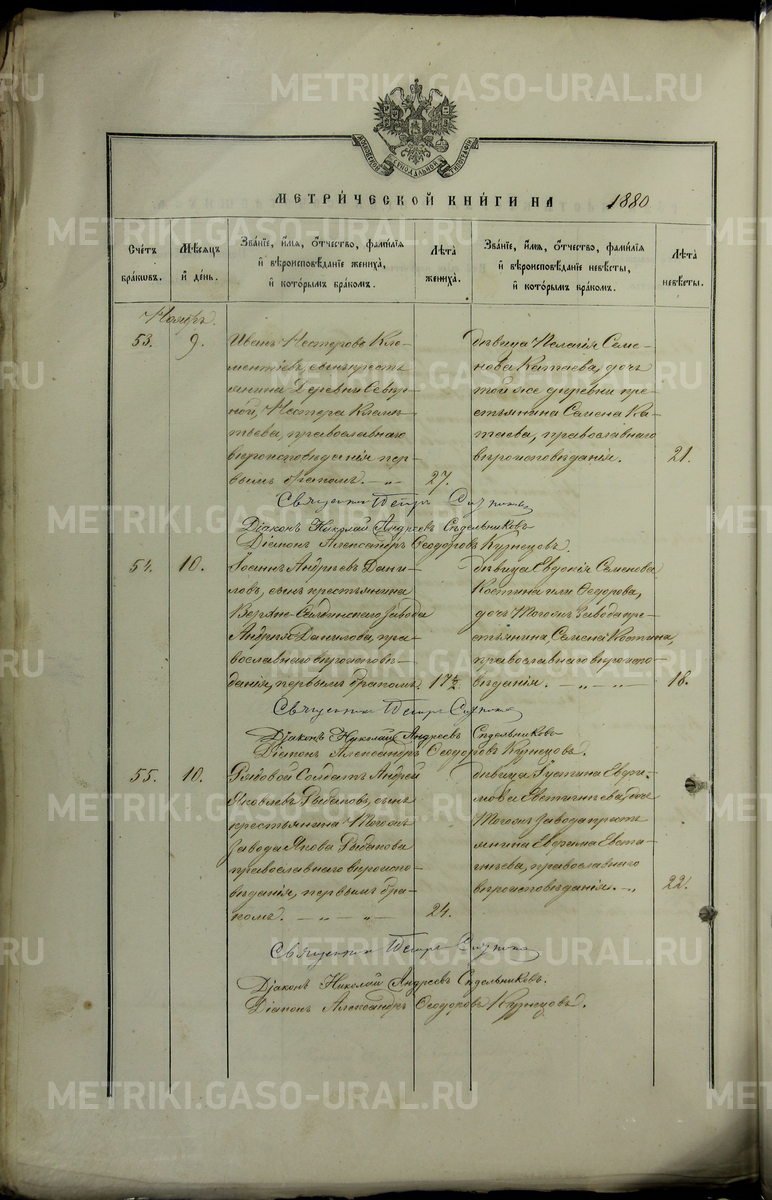 METRIKI.GASO-URAL.RU
МОСКОВСКОЙ СѴНОДАЛЬНОЙ ТИПОГРАФІИ
МЕТРИ́ЧЕСКОЙ КНИ́ГИ НА 1880
Счетъ браковъ.
Мѣсяцъ и день.
Званіе, имя, отчество, фамилія и вѣроисповѣданіе жениха, и которымъ бракомъ.
Лѣта жениха.
Званіе, имя, отчество, фамилія и вѣроисповѣданіе невѣсты, и которымъ бракомъ.
Лѣта невѣсты.
Ноябрь.
53. 9.
Иванъ Нестеровъ Кле-
ментіевъ, сынъ крестъ
янина Деревни Север-
ной, Нестера Клемен-
тьева, православнаго
вѣроисповѣданія пер-
вымъ бракомъ. 27.
дѣвица Пелагія Семе-
нова Катаева, дочь
той же деревни кре-
стьянина Семена Ка-
таева, православнаго
вѣроисповѣданія. 21.
Священникъ Петръ
Діаконъ Николай Андреевъ Сѣдельниковъ
Діаконъ Александръ Ѳеодоровъ Кузнецовъ.
54. 10.
Іоаннъ Андреевъ Дани-
ловъ, сынъ крестьянина
Верхне-Салдинскаго завода
Андрея Данилова, пра-
вославнаго вѣроисповѣ-
данія, первымъ бракомъ. 17½
дѣвица Евдокія Семенова
Костина или Ѳедорова,
дочь того же завода кре-
стьянина Семена Костина,
православнаго вѣроиспо-
вѣданія. 18.
Священникъ Петръ
Діаконъ Николай Андреевъ Сѣдельниковъ
Діаконъ Александръ Ѳеодоровъ Кузнецовъ.
55. 10.
Рядовой Солдатъ Андрей
Яковлевъ Рыбаковъ, сынъ
крестьянина того же
завода Якова Рыбакова
православнаго вѣроиспо-
вѣданія, первымъ бра-
комъ. 24.
дѣвица Іустина Евфи-
мова Евстигнѣева, дочь
того же завода кресть
янина Евфима Евсти-
гнѣева, православнаго
вѣроисповѣданія. 22.
Священникъ Петръ
Діаконъ Николай Андреевъ Сѣдельниковъ.
Діаконъ Александръ Ѳеодоровъ Кузнецовъ.